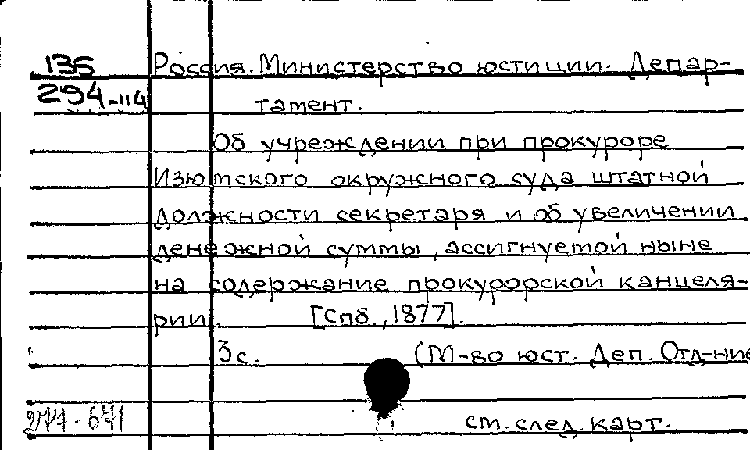 135 Россия. Министерство юстиции. Депар-
294-114 тамент.
Об учреждении при прокуроре
Изюмского окружного суда штатной
должности секретаря и об увеличении
денежной суммы, ассигнуемой ныне
на содержание прокурорской канцеля-
рии. [Спб., 1877].
3с. (М-во юст. Деп. Отд-ние
см. след. карт.